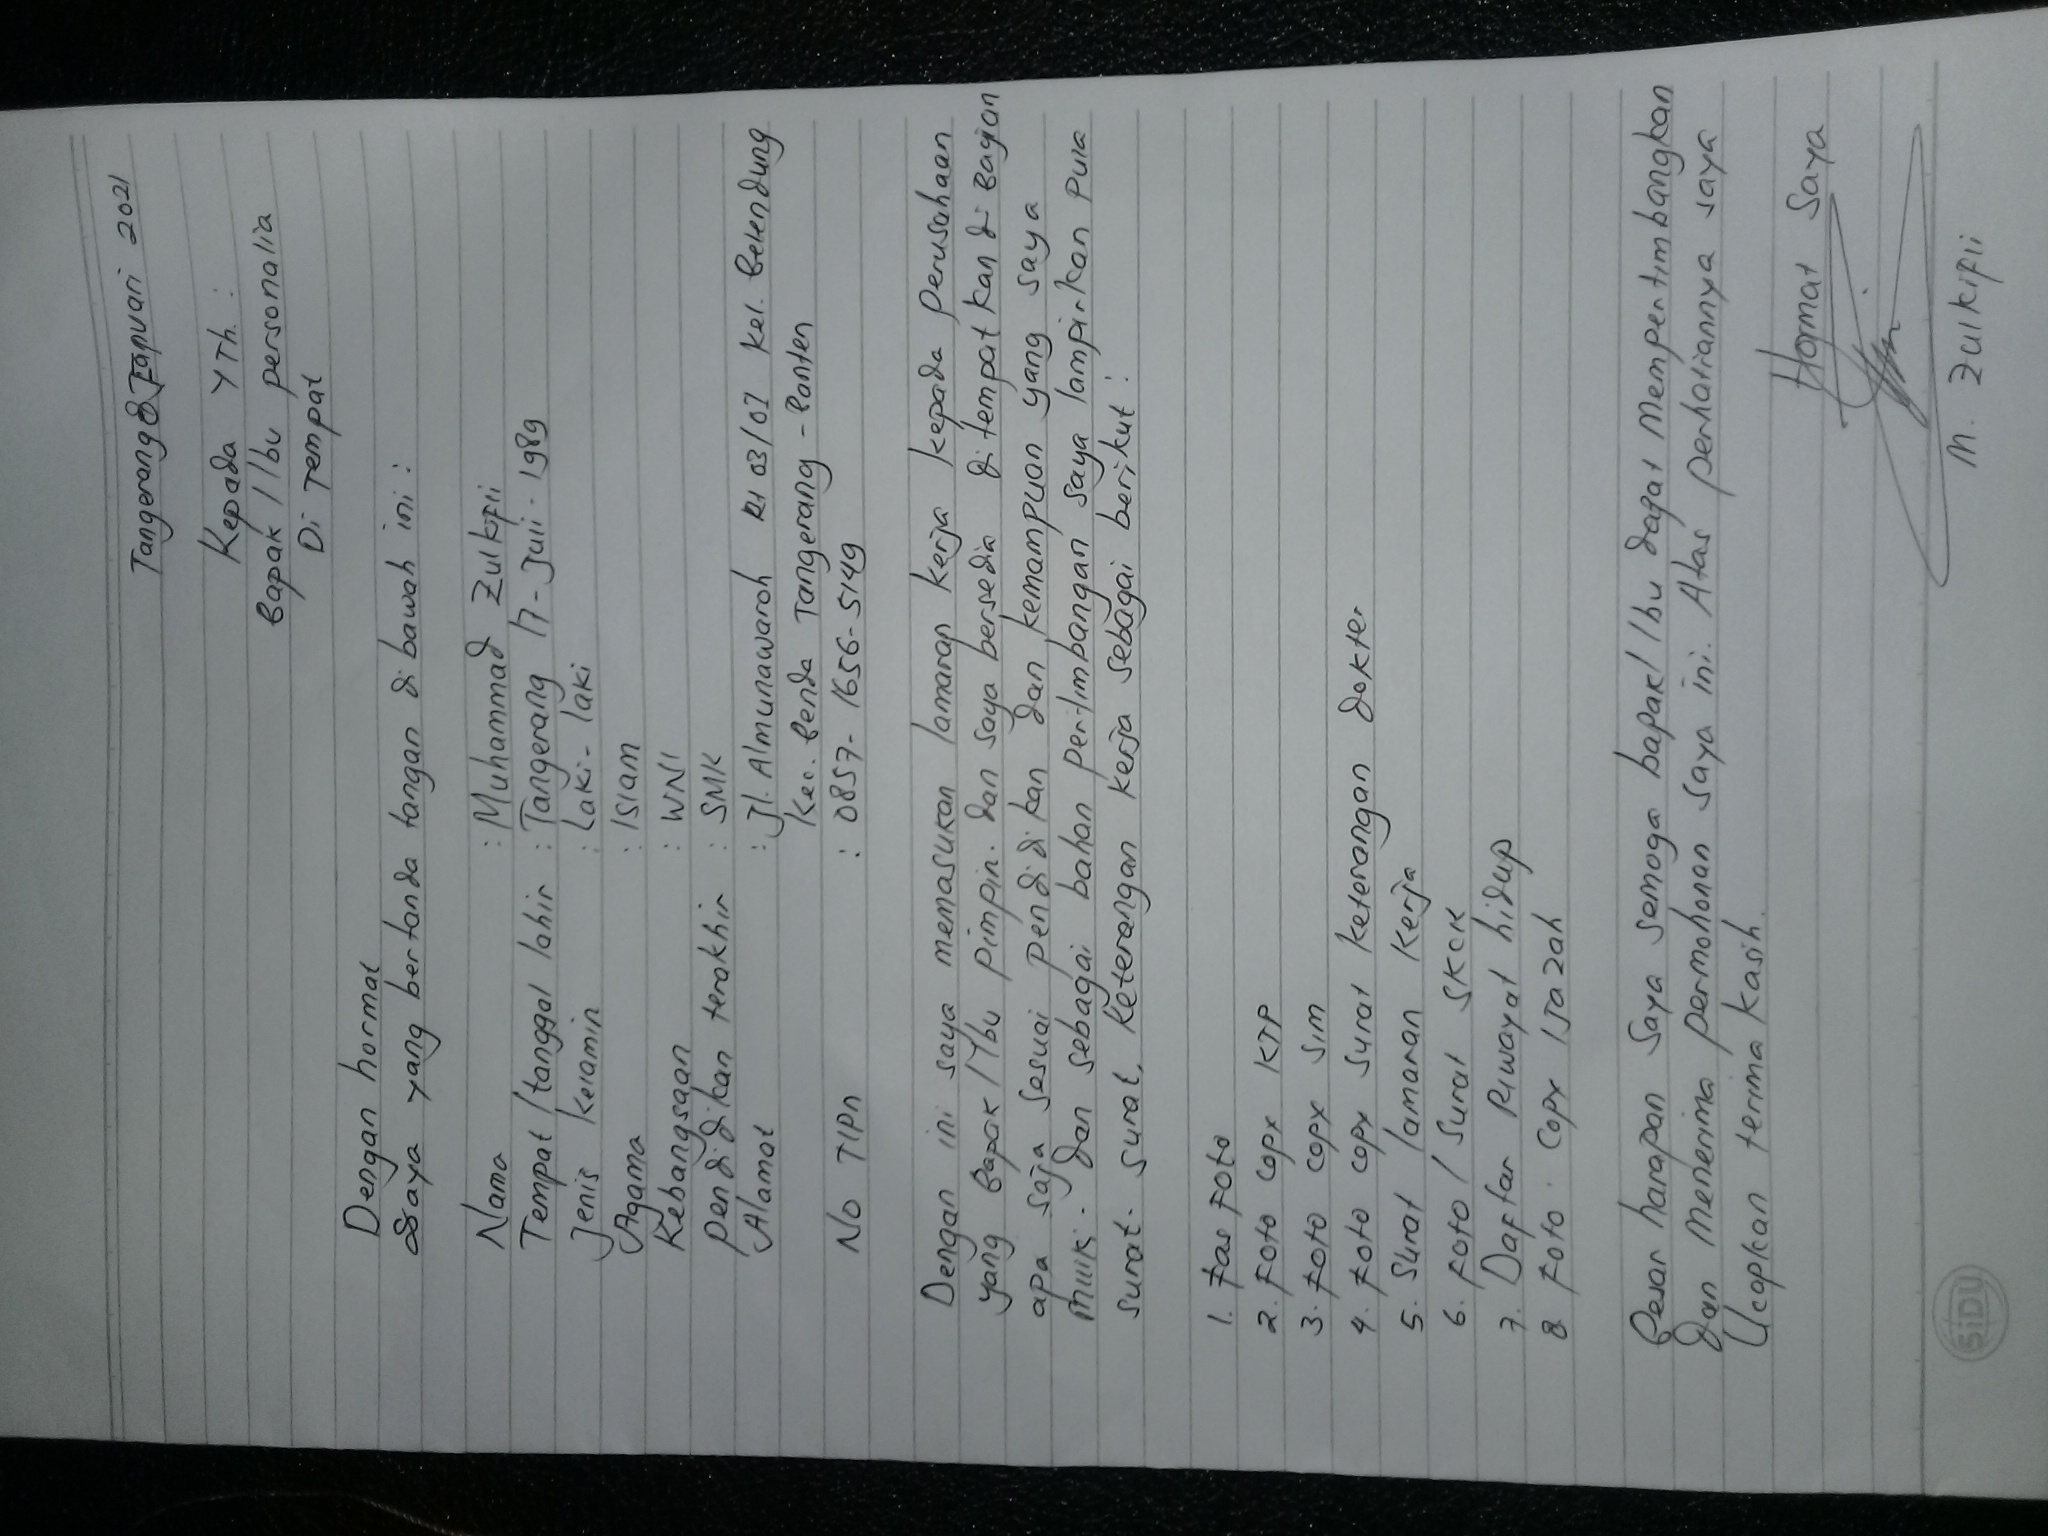 Tangerang 8 Januari 2021
Kepada YTh. :
Bapak / Ibu personalia
Di Tempat
Dengan hormat
Saya yang bertanda tangan dibawah ini :
Nama : Muhammad Zulkifli
Tempat / tanggal lahir : Tangerang 17 - Juli - 1989
Jenis kelamin : Laki - laki
Agama : Islam
Kebangsaan : WNI
pendidikan terakhir : SMK
Alamat : Jl. Almunawaroh Rt 03/07 Kel. Belendung
Kec. Benda Tangerang - Banten
No Tlpn : 0857- 1656- 5149
Dengan ini saya memasukan lamaran kerja kepada perusahaan
yang Bapak / Ibu pimpin. dan saya bersedia ditempatkan di Bagian
apa saja sesuai pendidikan dan kemampuan yang saya
miliki. dan sebagai bahan pertimbangan saya lampirkan pula
surat- surat, keterangan kerja sebagai berikut :
1. Fas Foto
2. Foto copy KTP
3. Foto copy SIM
4. Foto copy surat keterangan dokter
5. Surat lamaran kerja
6. Foto / Surat SKCK
7. Daftar Riwayat hidup
8. Foto copy Ijazah
Besar harapan saya semoga bapak / Ibu dapat mempertimbangkan
dan menerima permohonan saya ini. Atas perhatiannya saya
Ucapkan terima kasih.
Hormat Saya
M. Zulkifli
SiDU